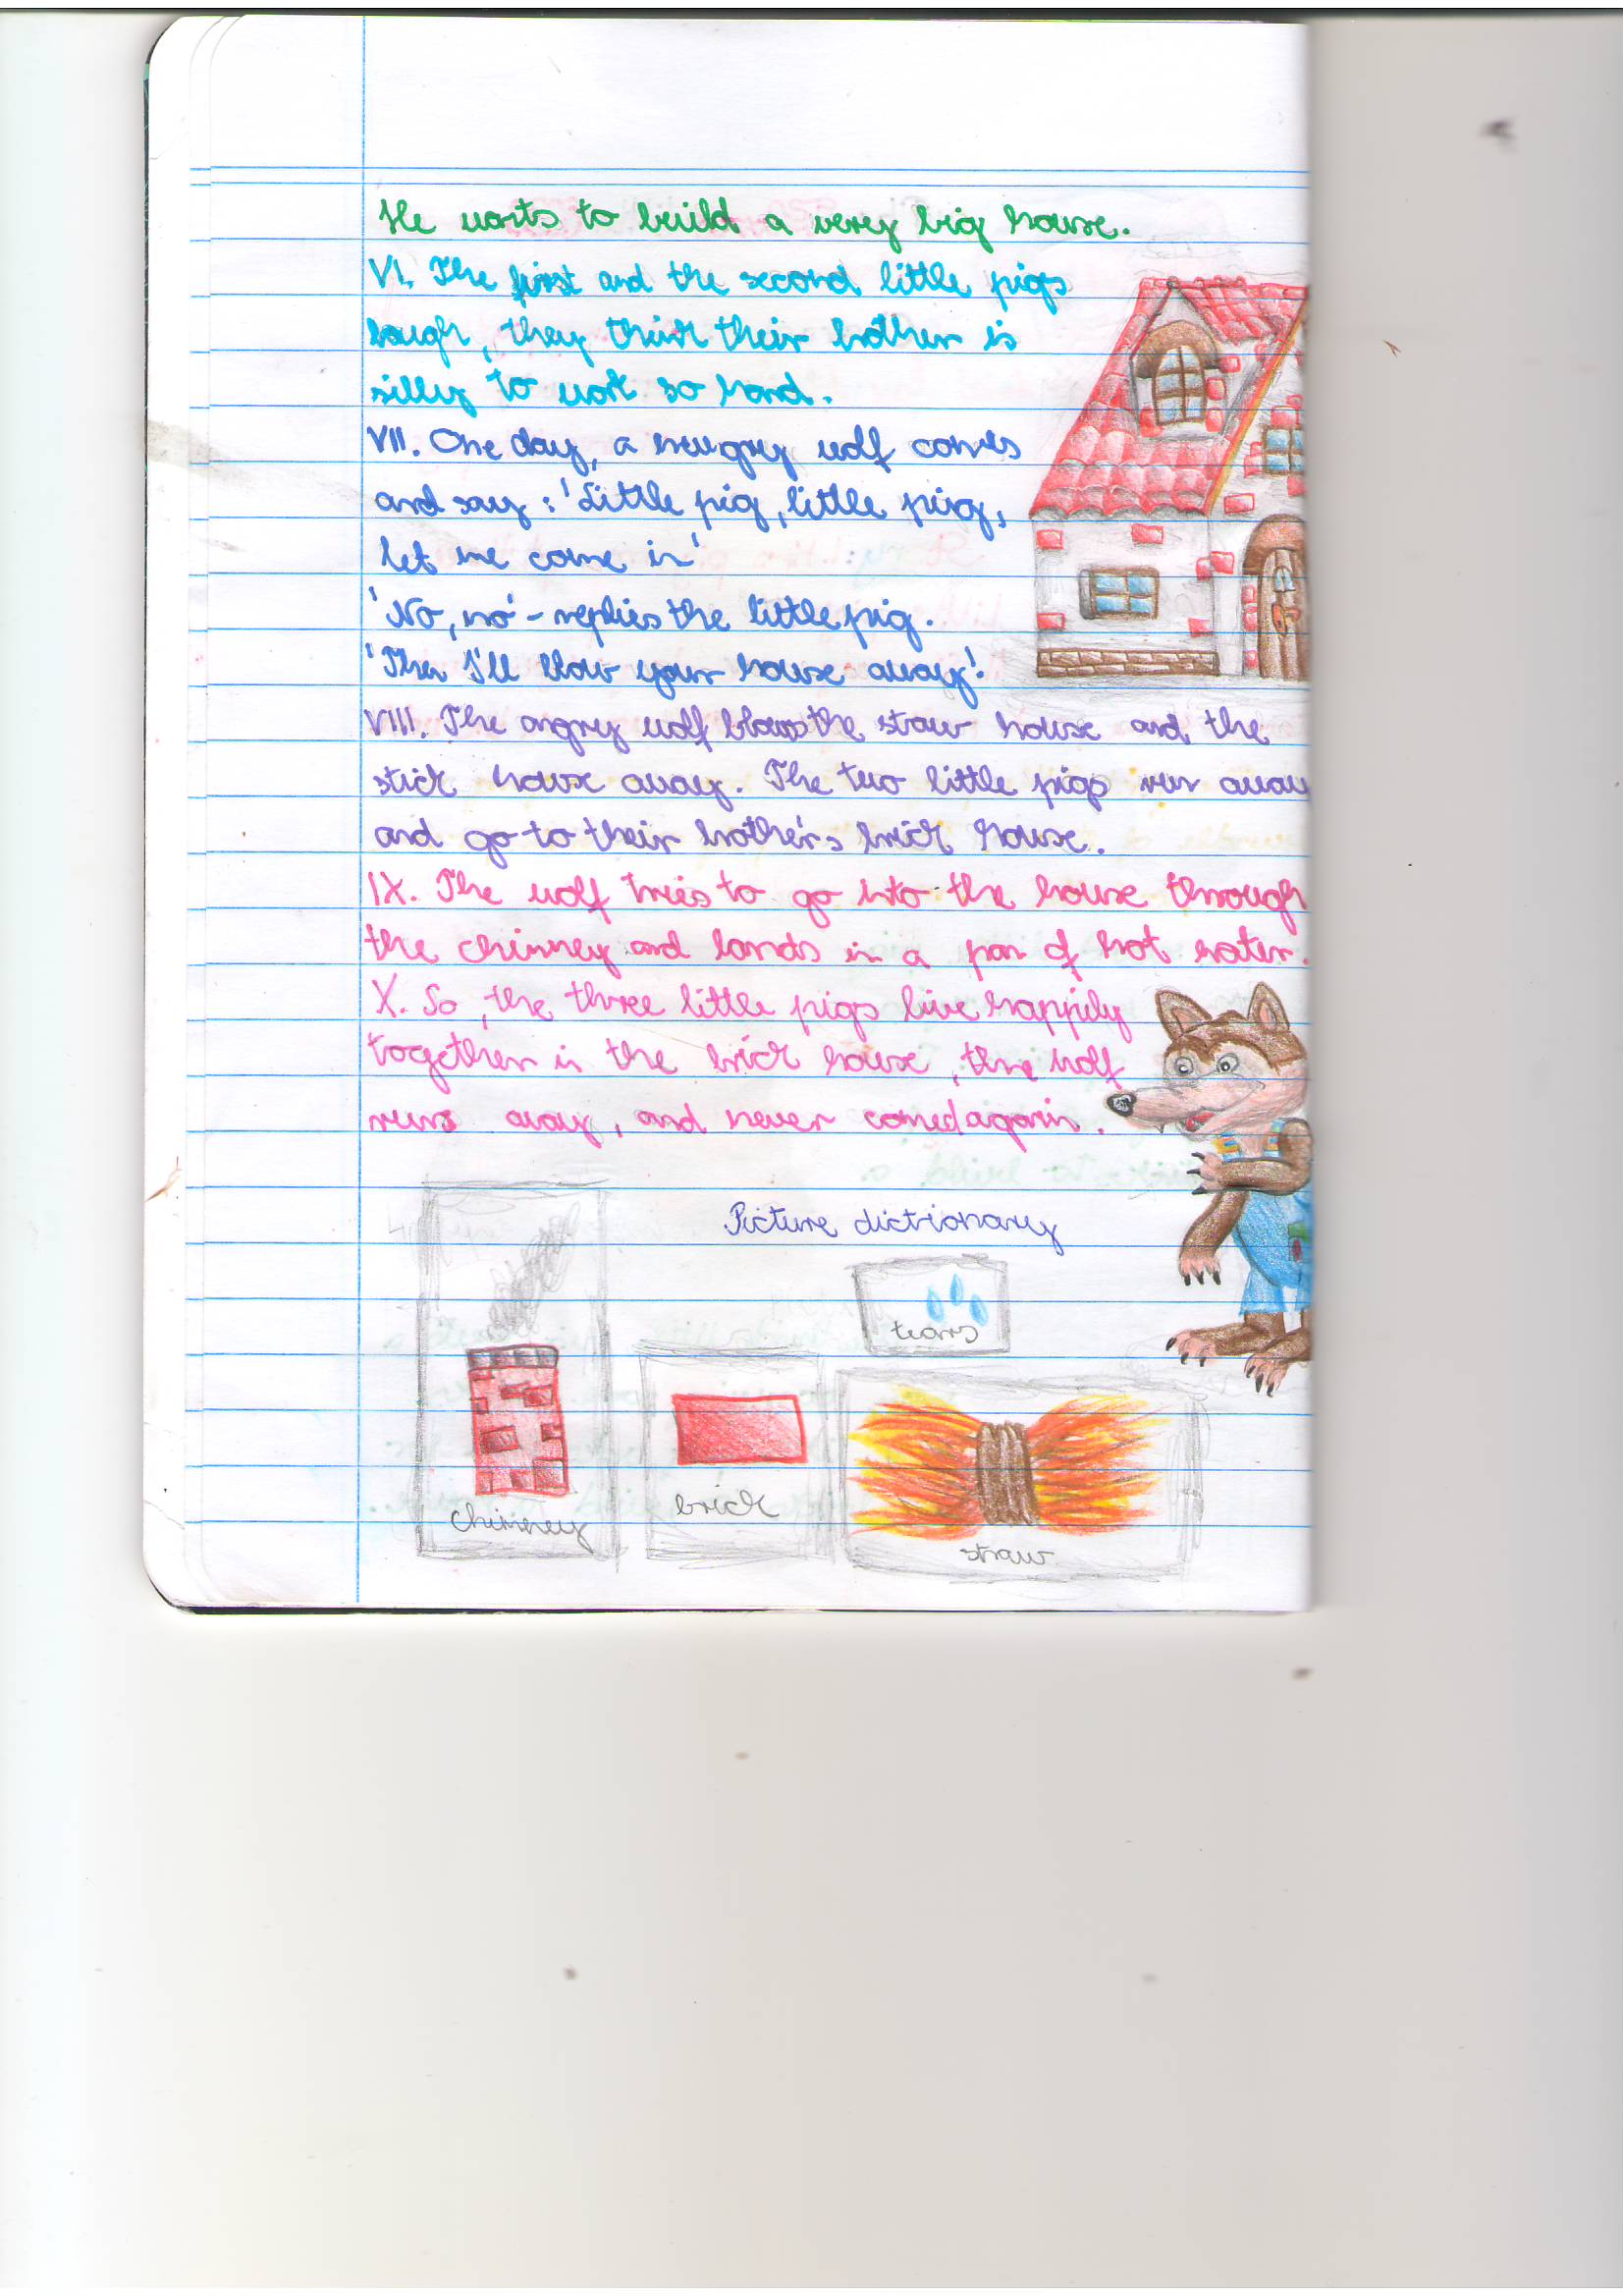 He wants to build a very big house.
VI. The first and the second little pigs
laugh, they think their brother is
silly to work so hard.
VII. One day, a hungry wolf comes
and say: 'Little pig, little pig,
let me come in'
'No, no' - replies the little pig.
'Then I'll blow your house away!
VIII. The angry wolf blows the straw house and the
stick house away. The two little pigs run away
and go to their brother's brick house.
IX. The wolf tries to go into the house through
the chimney and lands in a pan of hot water.
X. So, the three little pigs live happily
together in the brick house, the wolf
runs away, and never comed again.
Picture dictionary
tears
chimney
brick
straw